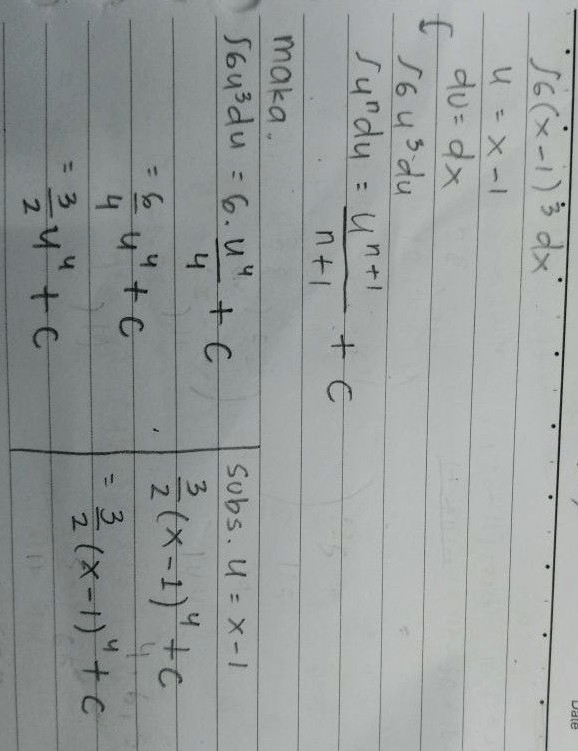 Date
∫6(x-1)³dx
u = x-1
du = dx
∫6u³.du
∫uⁿdu = uⁿ⁺¹/n+1 + C
maka.
∫6u³du = 6. u⁴/4 + C
= 6/4 u⁴ + C
= 3/2 u⁴ + C
subs. u = x-1
3/2 (x-1)⁴ + C
= 3/2 (x-1)⁴ + C